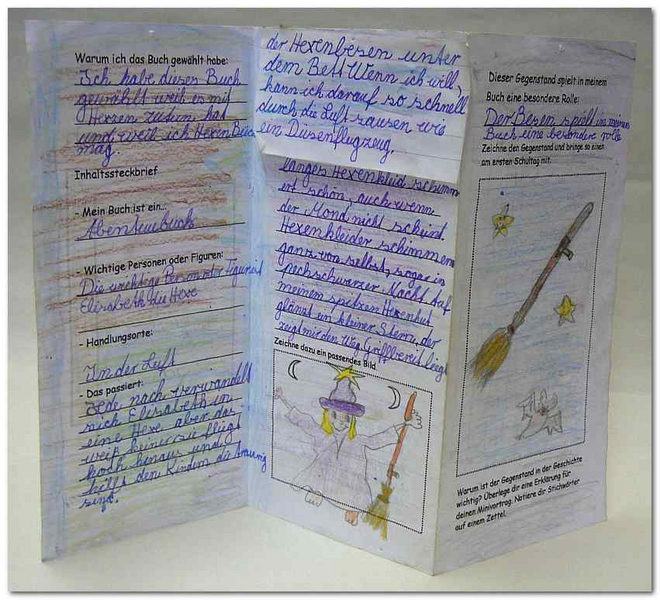 Warum ich das Buch gewählt habe:
Ich habe dieses Buch
gewählt weil es mit
Hexsen zutun hat
und weil ich HexenBuch
mag.
Inhaltssteckbrief
- Mein Buch ist ein...
Abenteubuch
- Wichtige Personen oder Figuren:
Die wichtige Person oder Figur ist
Elisabeth die Hexe
- Handlungsorte:
In der Luft
- Das passiert:
Jede nach verwandelt
sich Elisabeth in
eine Hexe aber das
weiß keiner sie fliegt
hoch hinaus und
hilft den Kindern die traurig
sind.
der Hexenbesen unter
dem Bett Wenn ich will,
kann ich darauf so schnell
durch die Luft sausen, wie
ein Düsenflugzeug.
langes Hexenkleid schimm
ert schön, auch wenn
der Mond nicht scheint.
Hexenkleider schimmern
ganz von selbst, sogar in
pechschwarzer Nacht. Auf
meinem spitzen Hexenhut
glänzt ein kleiner Stern, der
zeigt mir den Weg. Griffbereit liegt
Zeichne dazu ein passendes Bild.
Dieser Gegenstand spielt in meinem
Buch eine besondere Rolle:
Der Besen spielt in meinem
Buch eine besondere rolle
Zeichne den Gegenstand und bringe so einen
am ersten Schultag mit.
Warum ist der Gegenstand in der Geschichte
wichtig? Überlege dir eine Erklärung für
deinen Minivortrag. Notiere dir Stichwörter
auf einem Zettel.